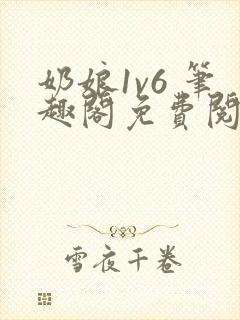 奶娘1v6 筆
趣閣免費閱
雪夜千卷